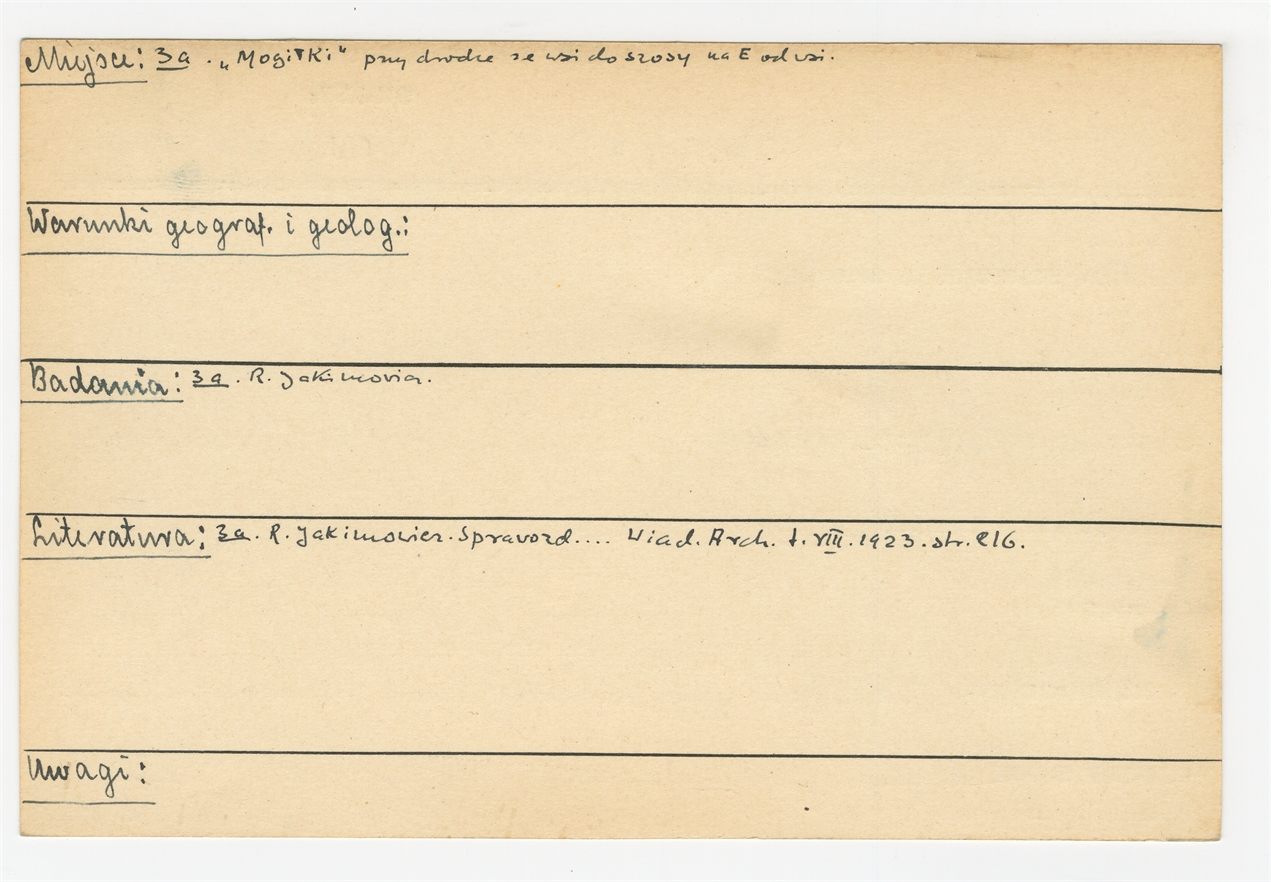 Miejsce: 3a. „Mogiłki" przy drodze ze wsi do szosy na E od wsi.
Warunki geograf. i geolog.:
Badania: 3a. R. Jakimowicz.
Literatura: 3a. R. Jakimowicz. Sprawozd.... Wiad. Arch. t. VIII. 1923. str. 216.
Uwagi: